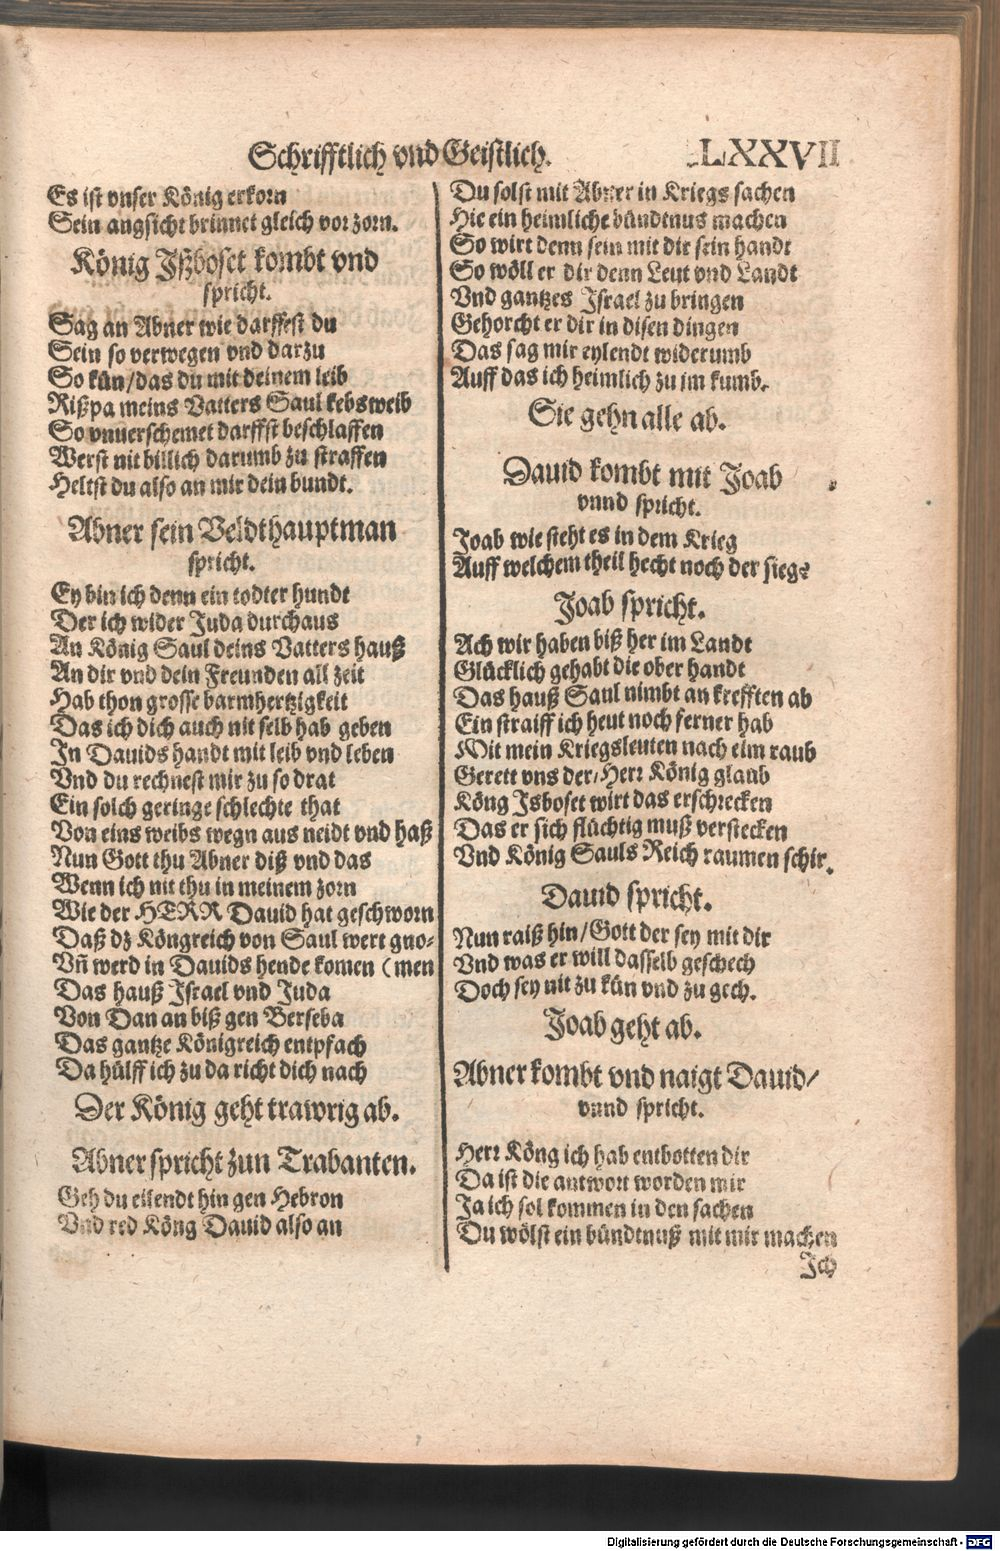 Schrifftlich vnd Geistlich.
LXXVII
Es ist vnser König erkorn
Sein angsicht brinnet gleich vor zorn.
König Jßboset kombt vnd
spricht.
Sag an Abner wie darffest du
Sein so verwegen vnd darzu
So kün/das du mit deinem leib
Rißpa meins Vatters Saul kebsweib
So vnuerschemet darffst beschlaffen
Werst nit billich darumb zu straffen
Heltst du also an mir dein bundt.
Abner sein Veldthauptman
spricht.
Ey bin ich denn ein todter hundt
Der ich wider Juda durchaus
An König Saul deins Vatters hauß
An dir vnd dein Freunden all zeit
Hab thon grosse barmhertzigkeit
Das ich dich auch nit selb hab geben
In Dauids handt mit leib vnd leben
Vnd du rechnest mir zu so drat
Ein solch geringe schlechte that
Von eins weibs wegn aus neidt vnd haß
Nun Gott thu Abner diß vnd das
Wenn ich nit thu in meinem zorn
Wie der HERR Dauid hat geschworn
Daß dz Köngreich von Saul wert gno-
Vñ werd in Dauids hende komen (men
Das hauß Israel vnd Juda
Von Dan an biß gen Berseba
Das gantze Königreich entpfach
Da hülff ich zu da richt dich nach
Der König geht trawrig ab.
Abner spricht zun Trabanten.
Geh du eilendt hin gen Hebron
Vnd red Köng Dauid also an
Du solst mit Abner in Kriegs sachen
Hie ein heimliche bündtnus machen
So wirt denn sein mit dir sein handt
So wöll er dir denn Leut vnd Landt
Vnd gantzes Israel zu bringen
Gehorcht er dir in disen dingen
Das sag mir eylendt widerumb
Auff das ich heimlich zu jm kumb.
Sie gehn alle ab.
Dauid kombt mit Joab
vnnd spricht.
Joab wie steht es in dem Krieg
Auff welchem theil hecht noch der sieg?
Joab spricht.
Ach wir haben biß her im Landt
Glücklich gehabt die ober handt
Das hauß Saul nimbt an krefften ab
Ein straiff ich heut noch ferner hab
Mit mein Kriegsleuten nach eim raub
Gerett vns der/Herr König glaub
Köng Jsboset wirt das erschrecken
Das er sich flüchtig muß verstecken
Vnd König Sauls Reich raumen schir.
Dauid spricht.
Nun raiß hin/Gott der sey mit dir
Vnd was er will dasselb geschech
Doch sey nit zu kün vnd zu gech.
Joab geht ab.
Abner kombt vnd naigt Dauid/
vnnd spricht.
Herr Köng ich hab entbotten dir
Da ist die antwort worden mir
Ja ich sol kommen in den sachen
Du wölst ein bündtnuß mit mir machen
Ich
Digitalisierung gefördert durch die Deutsche Forschungsgemeinschaft - DFG